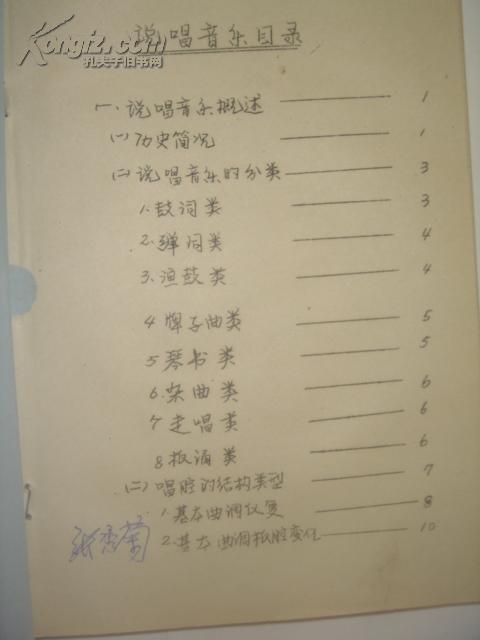 Kongfz.com
孔夫子旧书网
说唱音乐目录
一、说唱音乐概述 1
(一)历史简况 1
(二)说唱音乐的分类 3
1.鼓词类 3
2.弹词类 4
3.渔鼓类 4
4 牌子曲类 5
5 琴书类 5
6.杂曲类 6
7 走唱类 6
8 板诵类 6
(二)唱腔的结构类型 7
1.基本曲调反复 8
2.基本曲调板腔变化 10